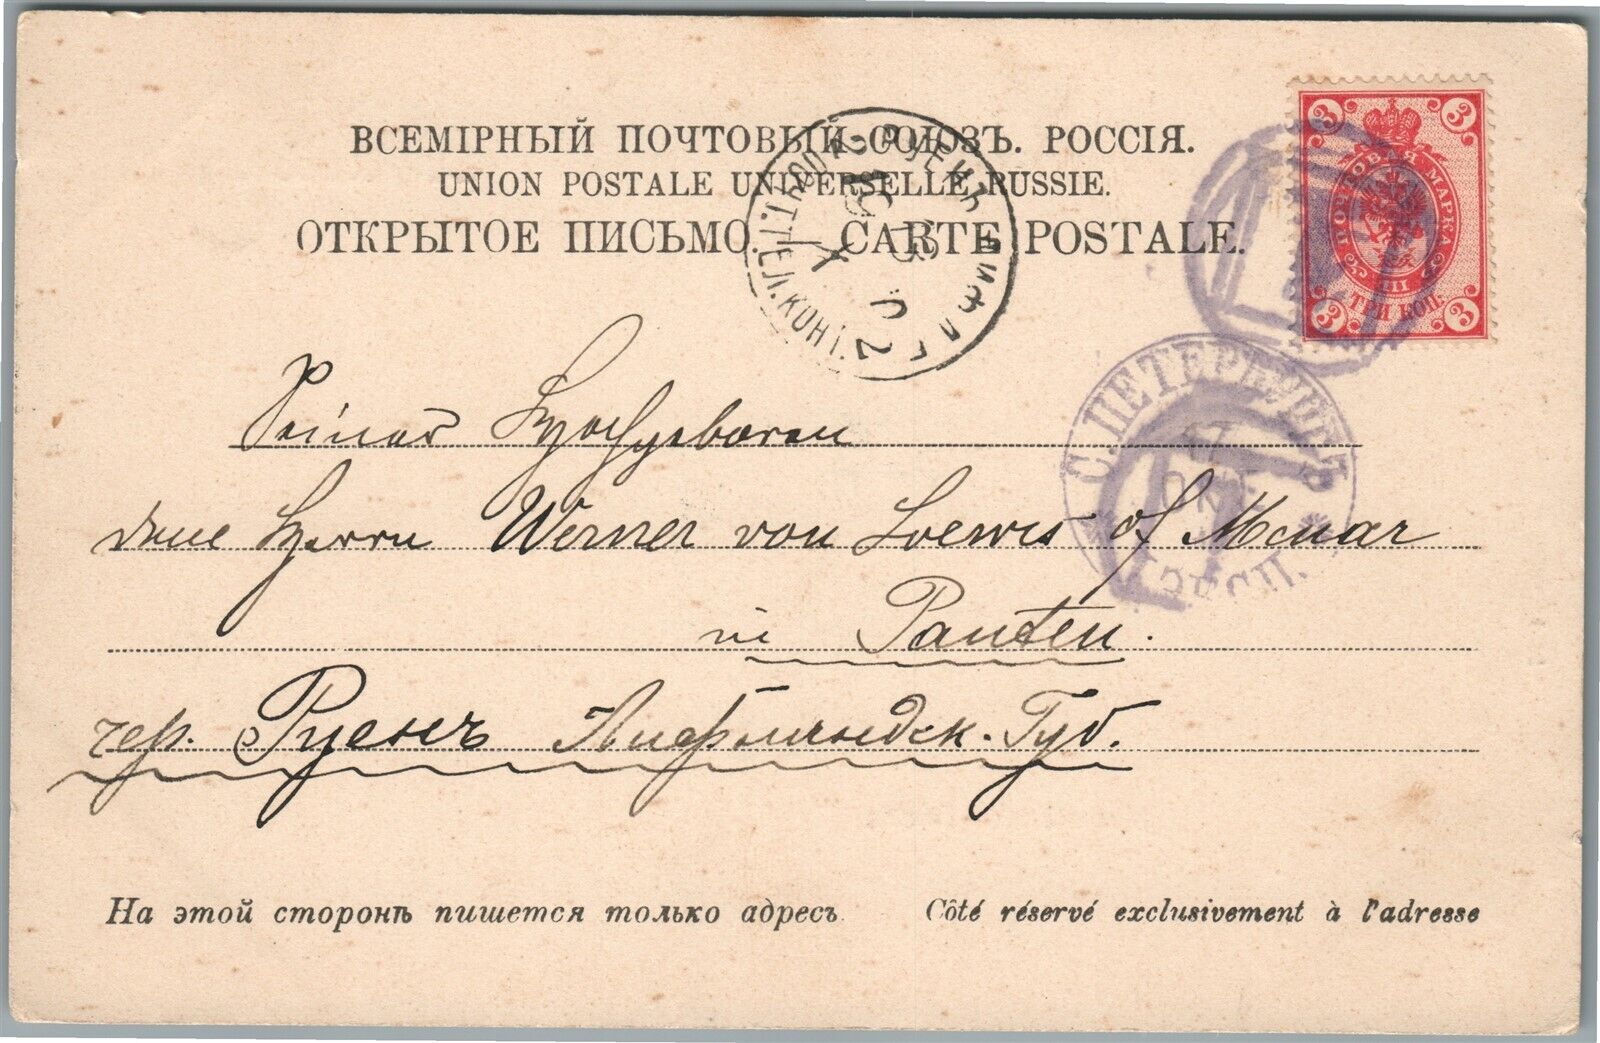 ВСЕМІРНЫЙ ПОЧТОВЫЙ СОЮЗЪ. РОССІЯ.
UNION POSTALE UNIVERSELLE RUSSIE.
ОТКРЫТОЕ ПИСЬМО. CARTE POSTALE.
3 3
ПОЧТОВАЯ МАРКА
ТРИ КОП.
3 3
РУЕНЪ ЛИФЛ.
ПОЧТ. ТЕЛ. КОНТ.
С. ПЕТЕРБУРГЪ
17
ОКТ
Seiner Hochgeboren
dem Herrn Werner von Loewis of Menar
in Panten.
чер. Руенъ Лифляндск. Губ.
На этой сторонѣ пишется только адресъ. Côté réservé exclusivement à l'adresse